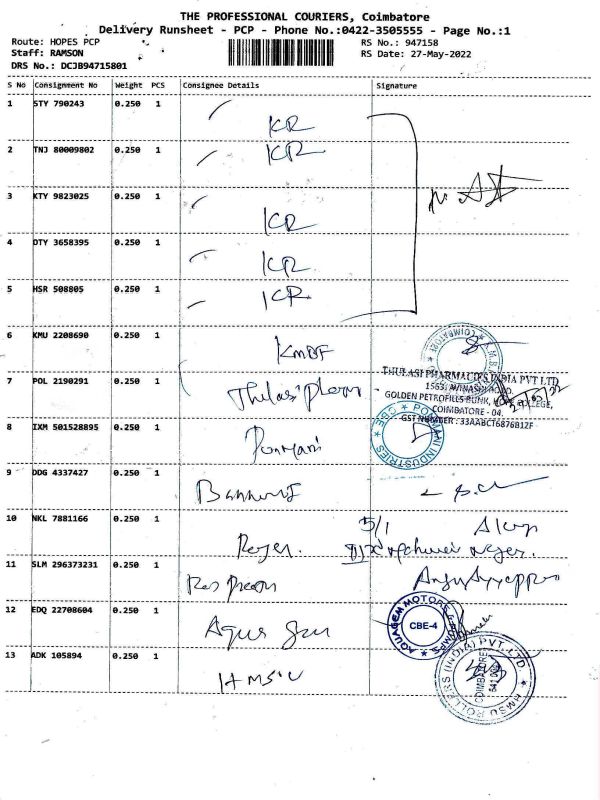 THE PROFESSIONAL COURIERS, Coimbatore
Delivery Runsheet - PCP - Phone No.:0422-3505555 - Page No.:1
Route: HOPES PCP RS No.: 947158
Staff: RAMSON RS Date: 27-May-2022
DRS No.: DCJB94715801
S No Consignment No Weight PCS Consignee Details Signature
1 STY 790243 0.250 1
KR
2 TNJ 80009802 0.250 1 KR
3 KTY 9823025 0.250 1
KR
4 OTY 3658395 0.250 1
KR
5 HSR 508805 0.250 1 KR
6 KMU 2208690 0.250 1
KMBF
COIMBATORE
THULASI PHARMACIES INDIA PVT LTD
7 POL 2190291 0.250 1 Thulasi pharm
1563, AVINASHI ROAD,
GOLDEN PETROFILLS BUNK, HOPE COLLEGE,
COIMBATORE - 04.
GST NUMBER : 33AABCT6876B1ZF
8 IXM 501528895 0.250 1
Ponmani
PONMANI INDUSTRIES CBE
9 DDG 4337427 0.250 1
10 NKL 7881166 0.250 1
5/1
11 SLM 296373231 0.250 1
12 EDQ 22708604 0.250 1
AQUAGEM MOTORS & PUMPS
CBE-4
13 ADK 105894 0.250 1
HMSU
HMSU ROLLERS (INDIA) PVT. LTD.
COIMBATORE
641 004